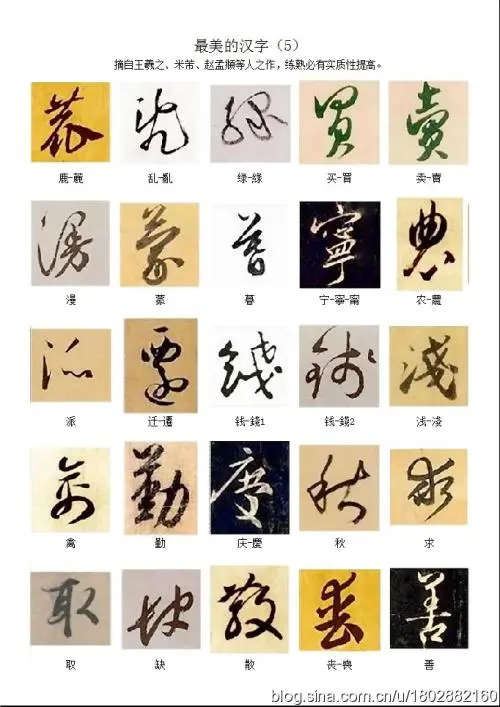 最美的汉字（5）
摘自王羲之、米芾、赵孟頫等人之作，练熟必有实质性提高。
鹿-麓 乱-亂 绿-綠 买-買 卖-賣
漫 蒙 暮 宁-寧-甯 农-農
派 迁-遷 钱-錢1 钱-錢2 浅-淺
禽 勤 庆-慶 秋 求
取 缺 散 丧-喪 善
blog.sina.com.cn/u/1802882160